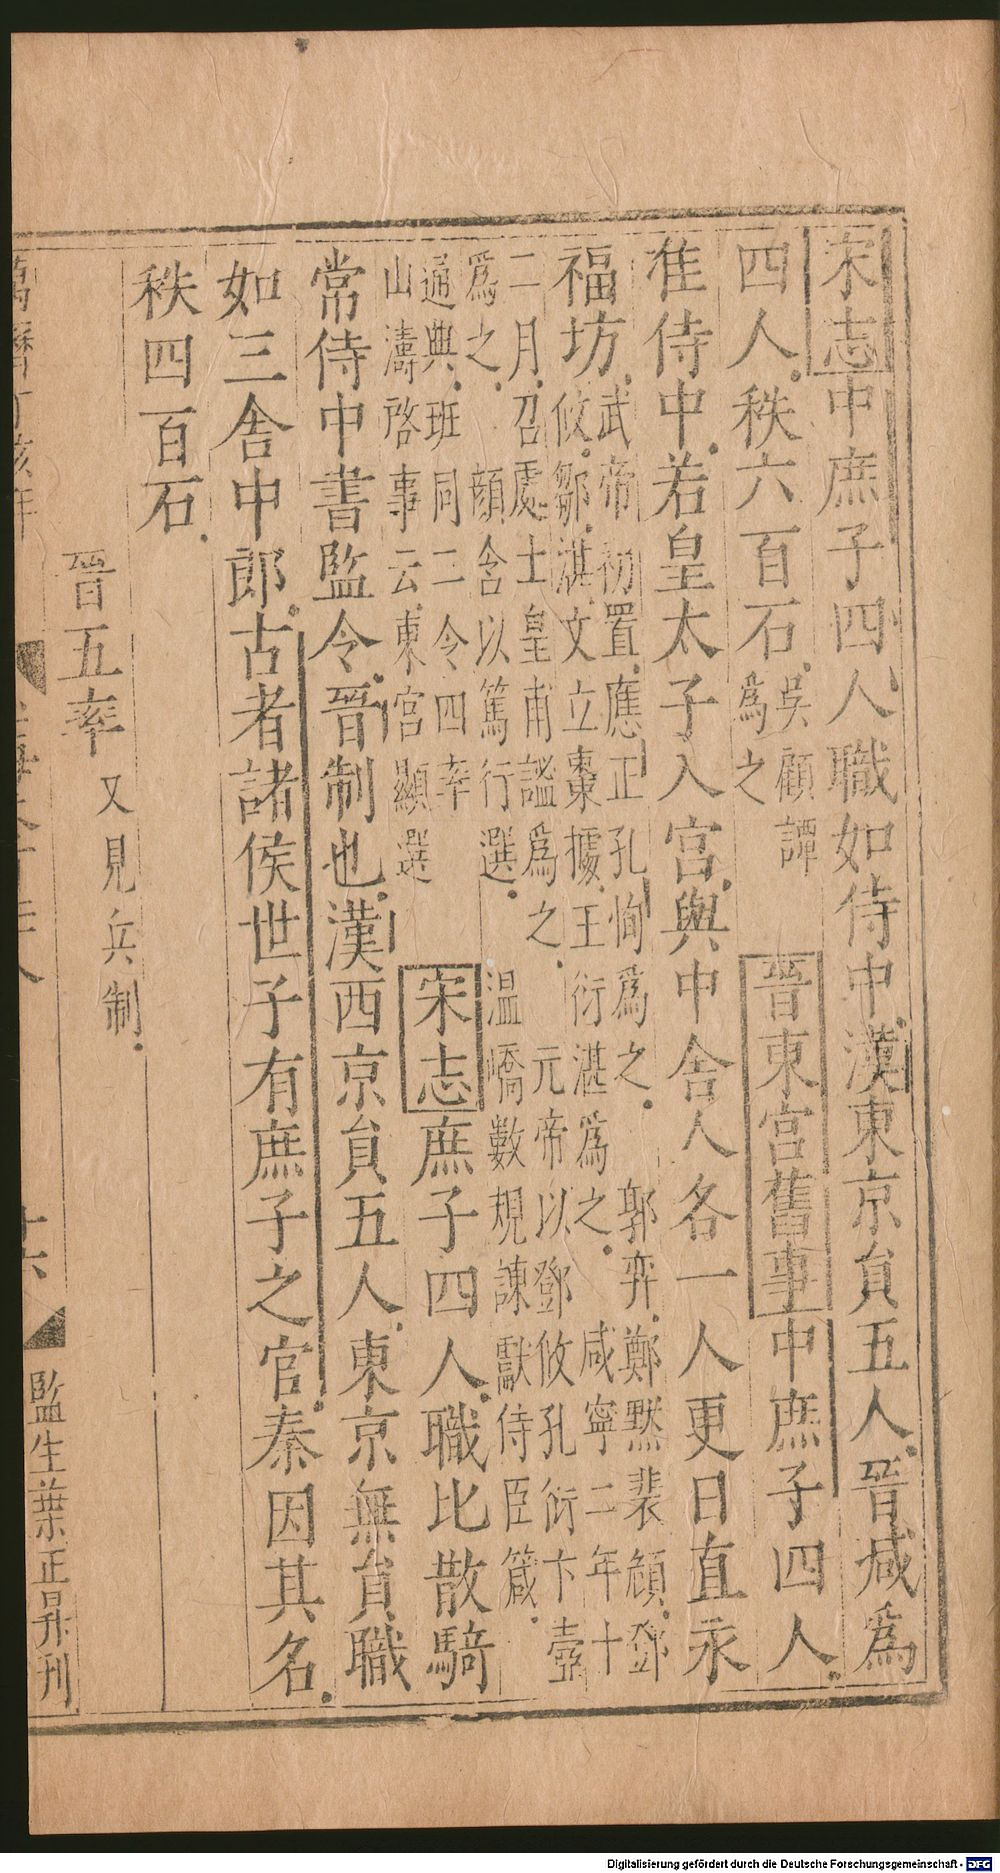 宋志中庶子四人職如侍中漢東京貟五人晉减爲
四人秩六百石吳顧譚
爲之
晉東宮舊事中庶子四人
隹侍中若皇太子入宮與中舍人各一人更日直永
福坊武帝初置應正孔恂爲之 郭弈鄭默裴頠鄧
攸鄒湛文立棗據王衍湛爲之 咸寧二年十
二月召處士皇甫謐爲之 元帝以鄧攸孔衍卞壼
爲之 顏含以篤行選 温嶠數規諫獻侍臣箴
通典班同二令四率
山濤啓事云東宮顯選
宋志庶子四人職比散騎
常侍中書監令晉制也漢西京貟五人東京無貟職
如三舍中郎古者諸侯世子有庶子之官秦因其名
秩四百石
晉五率 又見兵制
萬曆丁亥年
十六
監生葉正昇刊
Digitalisierung gefördert durch die Deutsche Forschungsgemeinschaft - DFG